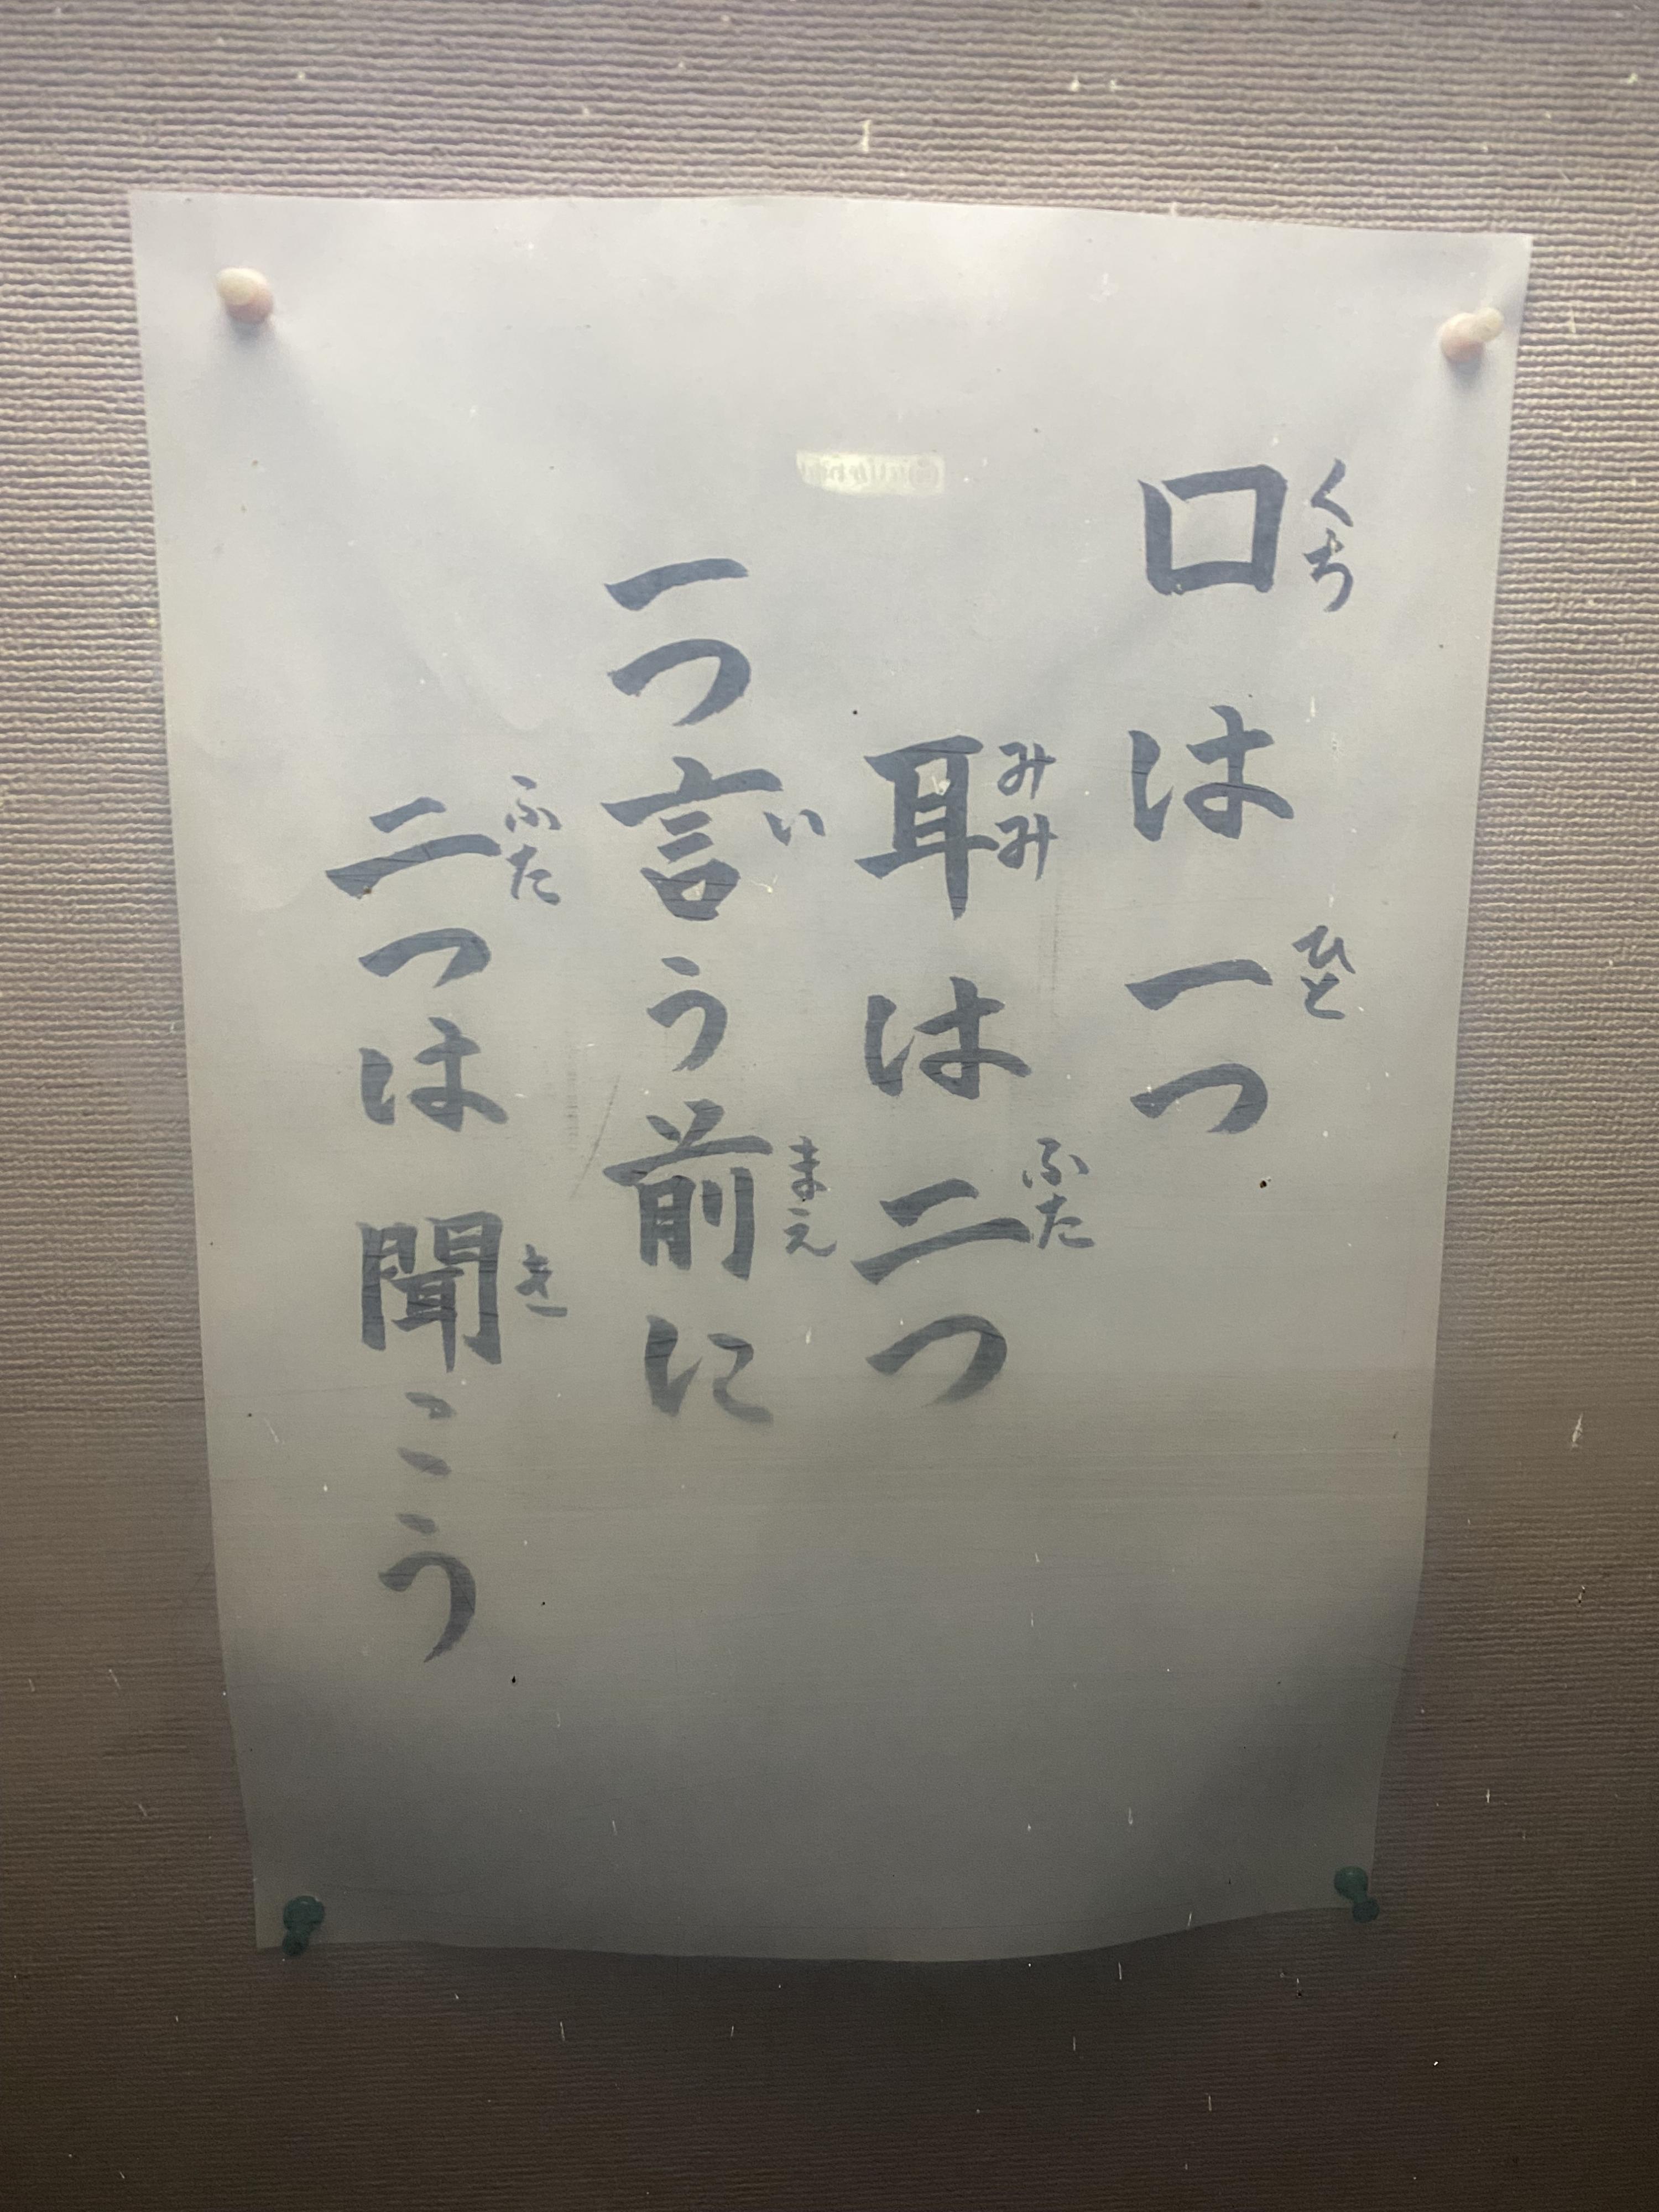 口は一つ
耳は二つ
一つ言う前に
二つは聞こう
くち
ひと
みみ
ふた
い
まえ
ふた
き